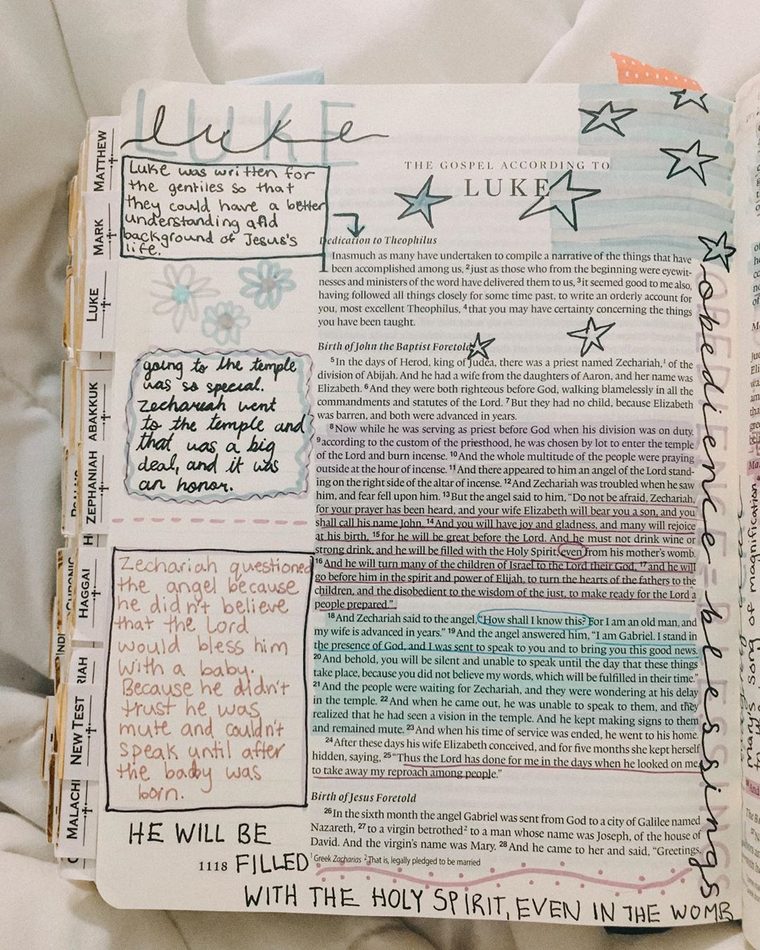 LUKE
luke
Luke was written for
the gentiles so that
they could have a better
understanding and
background of Jesus's
life.
going to the temple
was so special.
Zechariah went
to the temple and
that was a big
deal, and it was
an honor.
Zechariah questioned
the angel because
he didn't believe
that the Lord
would bless him
with a baby.
Because he didn't
trust he was
mute and couldn't
speak until after
the baby was
born.
THE GOSPEL ACCORDING TO
LUKE
Dedication to Theophilus
1 Inasmuch as many have undertaken to compile a narrative of the things that have
been accomplished among us, 2 just as those who from the beginning were eyewit-
nesses and ministers of the word have delivered them to us, 3 it seemed good to me also,
having followed all things closely for some time past, to write an orderly account for
you, most excellent Theophilus, 4 that you may have certainty concerning the things
you have been taught.
Birth of John the Baptist Foretold
5 In the days of Herod, king of Judea, there was a priest named Zechariah,1 of the
division of Abijah. And he had a wife from the daughters of Aaron, and her name was
Elizabeth. 6 And they were both righteous before God, walking blamelessly in all the
commandments and statutes of the Lord. 7 But they had no child, because Elizabeth
was barren, and both were advanced in years.
8 Now while he was serving as priest before God when his division was on duty,
9 according to the custom of the priesthood, he was chosen by lot to enter the temple
of the Lord and burn incense. 10 And the whole multitude of the people were praying
outside at the hour of incense. 11 And there appeared to him an angel of the Lord stand-
ing on the right side of the altar of incense. 12 And Zechariah was troubled when he saw
him, and fear fell upon him. 13 But the angel said to him, “Do not be afraid, Zechariah,
for your prayer has been heard, and your wife Elizabeth will bear you a son, and you
shall call his name John. 14 And you will have joy and gladness, and many will rejoice
at his birth, 15 for he will be great before the Lord. And he must not drink wine or
strong drink, and he will be filled with the Holy Spirit, even from his mother’s womb.
16 And he will turn many of the children of Israel to the Lord their God, 17 and he will
go before him in the spirit and power of Elijah, to turn the hearts of the fathers to the
children, and the disobedient to the wisdom of the just, to make ready for the Lord a
people prepared.”
18 And Zechariah said to the angel, “How shall I know this? For I am an old man, and
my wife is advanced in years.” 19 And the angel answered him, “I am Gabriel. I stand in
the presence of God, and I was sent to speak to you and to bring you this good news.
20 And behold, you will be silent and unable to speak until the day that these things
take place, because you did not believe my words, which will be fulfilled in their time.”
21 And the people were waiting for Zechariah, and they were wondering at his delay
in the temple. 22 And when he came out, he was unable to speak to them, and they
realized that he had seen a vision in the temple. And he kept making signs to them
and remained mute. 23 And when his time of service was ended, he went to his home.
24 After these days his wife Elizabeth conceived, and for five months she kept herself
hidden, saying, 25 “Thus the Lord has done for me in the days when he looked on me,
to take away my reproach among people.”
Birth of Jesus Foretold
26 In the sixth month the angel Gabriel was sent from God to a city of Galilee named
Nazareth, 27 to a virgin betrothed2 to a man whose name was Joseph, of the house of
David. And the virgin’s name was Mary. 28 And he came to her and said, “Greetings,
1 Greek Zacharias 2 That is, legally pledged to be married
1118
HE WILL BE
FILLED
WITH THE HOLY SPIRIT, EVEN IN THE WOMB
obedience blessings
OBEDIENCE = BLESSINGS
MATTHEW
MARK
LUKE
ABAKKUK
ZEPHANIAH
HAGGAI
RIAH
NEW TEST
MALACHI
mary's song of magnification